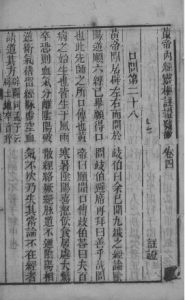 黃帝內經靈樞註證發微 卷四
口問第二十八
黃帝閒居辟左右而問於岐伯曰余已聞九鍼之經論陰
陽逆順六經已畢願得口問岐伯避席再拜曰善乎哉問
也此先師之所口傳也黃帝曰願聞口傳岐伯答曰夫百
病之始生也皆生于風雨寒暑陰陽喜怒飲食居處大驚
卒恐則血氣分離陰陽破散經絡厥絕脈道不通陰陽相
逆衛氣稽留經脈虛空血氣不次乃失其常論不在經者
請道其方